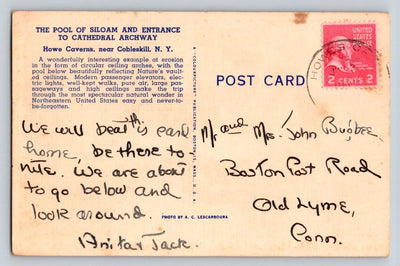 THE POOL OF SILOAM AND ENTRANCE
TO CATHEDRAL ARCHWAY
Howe Caverns, near Cobleskill, N. Y.
A wonderfully interesting example at erosion
in the form of circular ceiling arches, with the
pool below beautifully reflecting Nature's vault-
ed ceilings. Modern passenger elevators, elec-
tric lights, well-kept walks, pure air, large pas-
sageways and high ceilings make the trip
through the most spectacular natural wonder in
Northeastern United States easy and never-to-
be-forgotten.
We will beat this card
home, be there to
nite. We are about
to go below and
look around.
Anita + Jack.
PHOTO BY A. C. LESCARBOURA
POST CARD
UNITED STATES
POSTAGE
2 CENTS 2
Mr. and Mrs. John Bugbee
Boston Post Road
Old Lyme,
Conn.